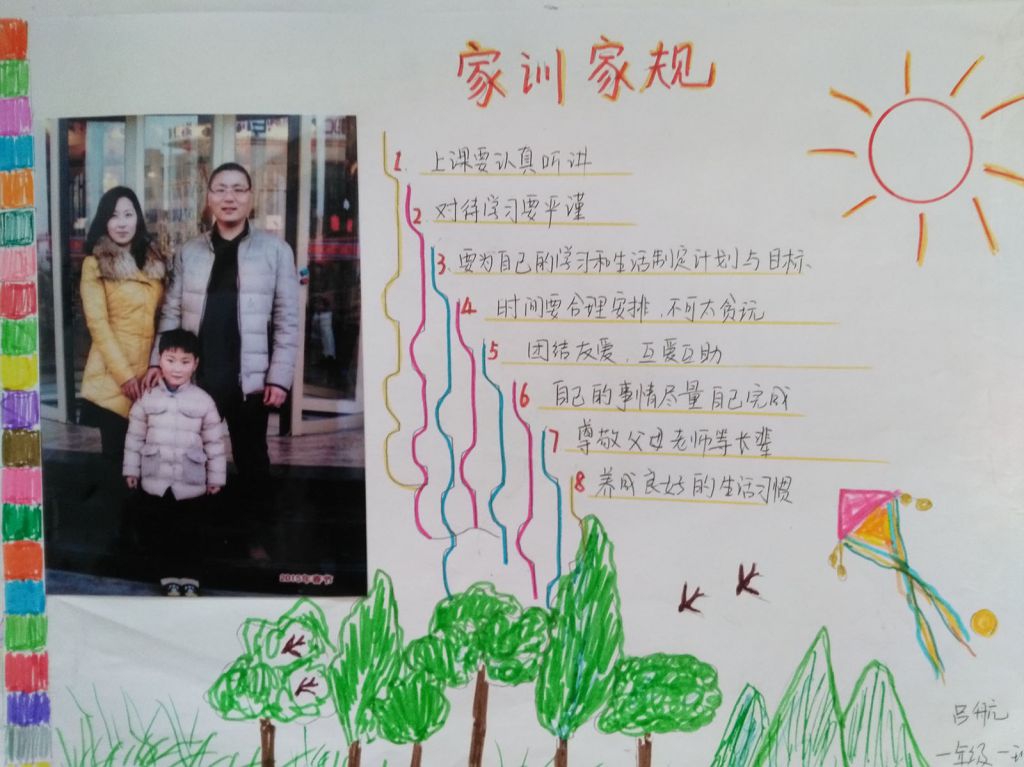 家训家规
1. 上课要认真听讲
2. 对待学习要严谨
3、要为自己的学习和生活制定计划与目标、
4 时间要合理安排，不可太贪玩
5 团结友爱，互爱互助
6 自己的事情尽量自己完成
7 尊敬父母老师等长辈
8 养成良好的生活习惯
2015年春节
吕航
一年级一班